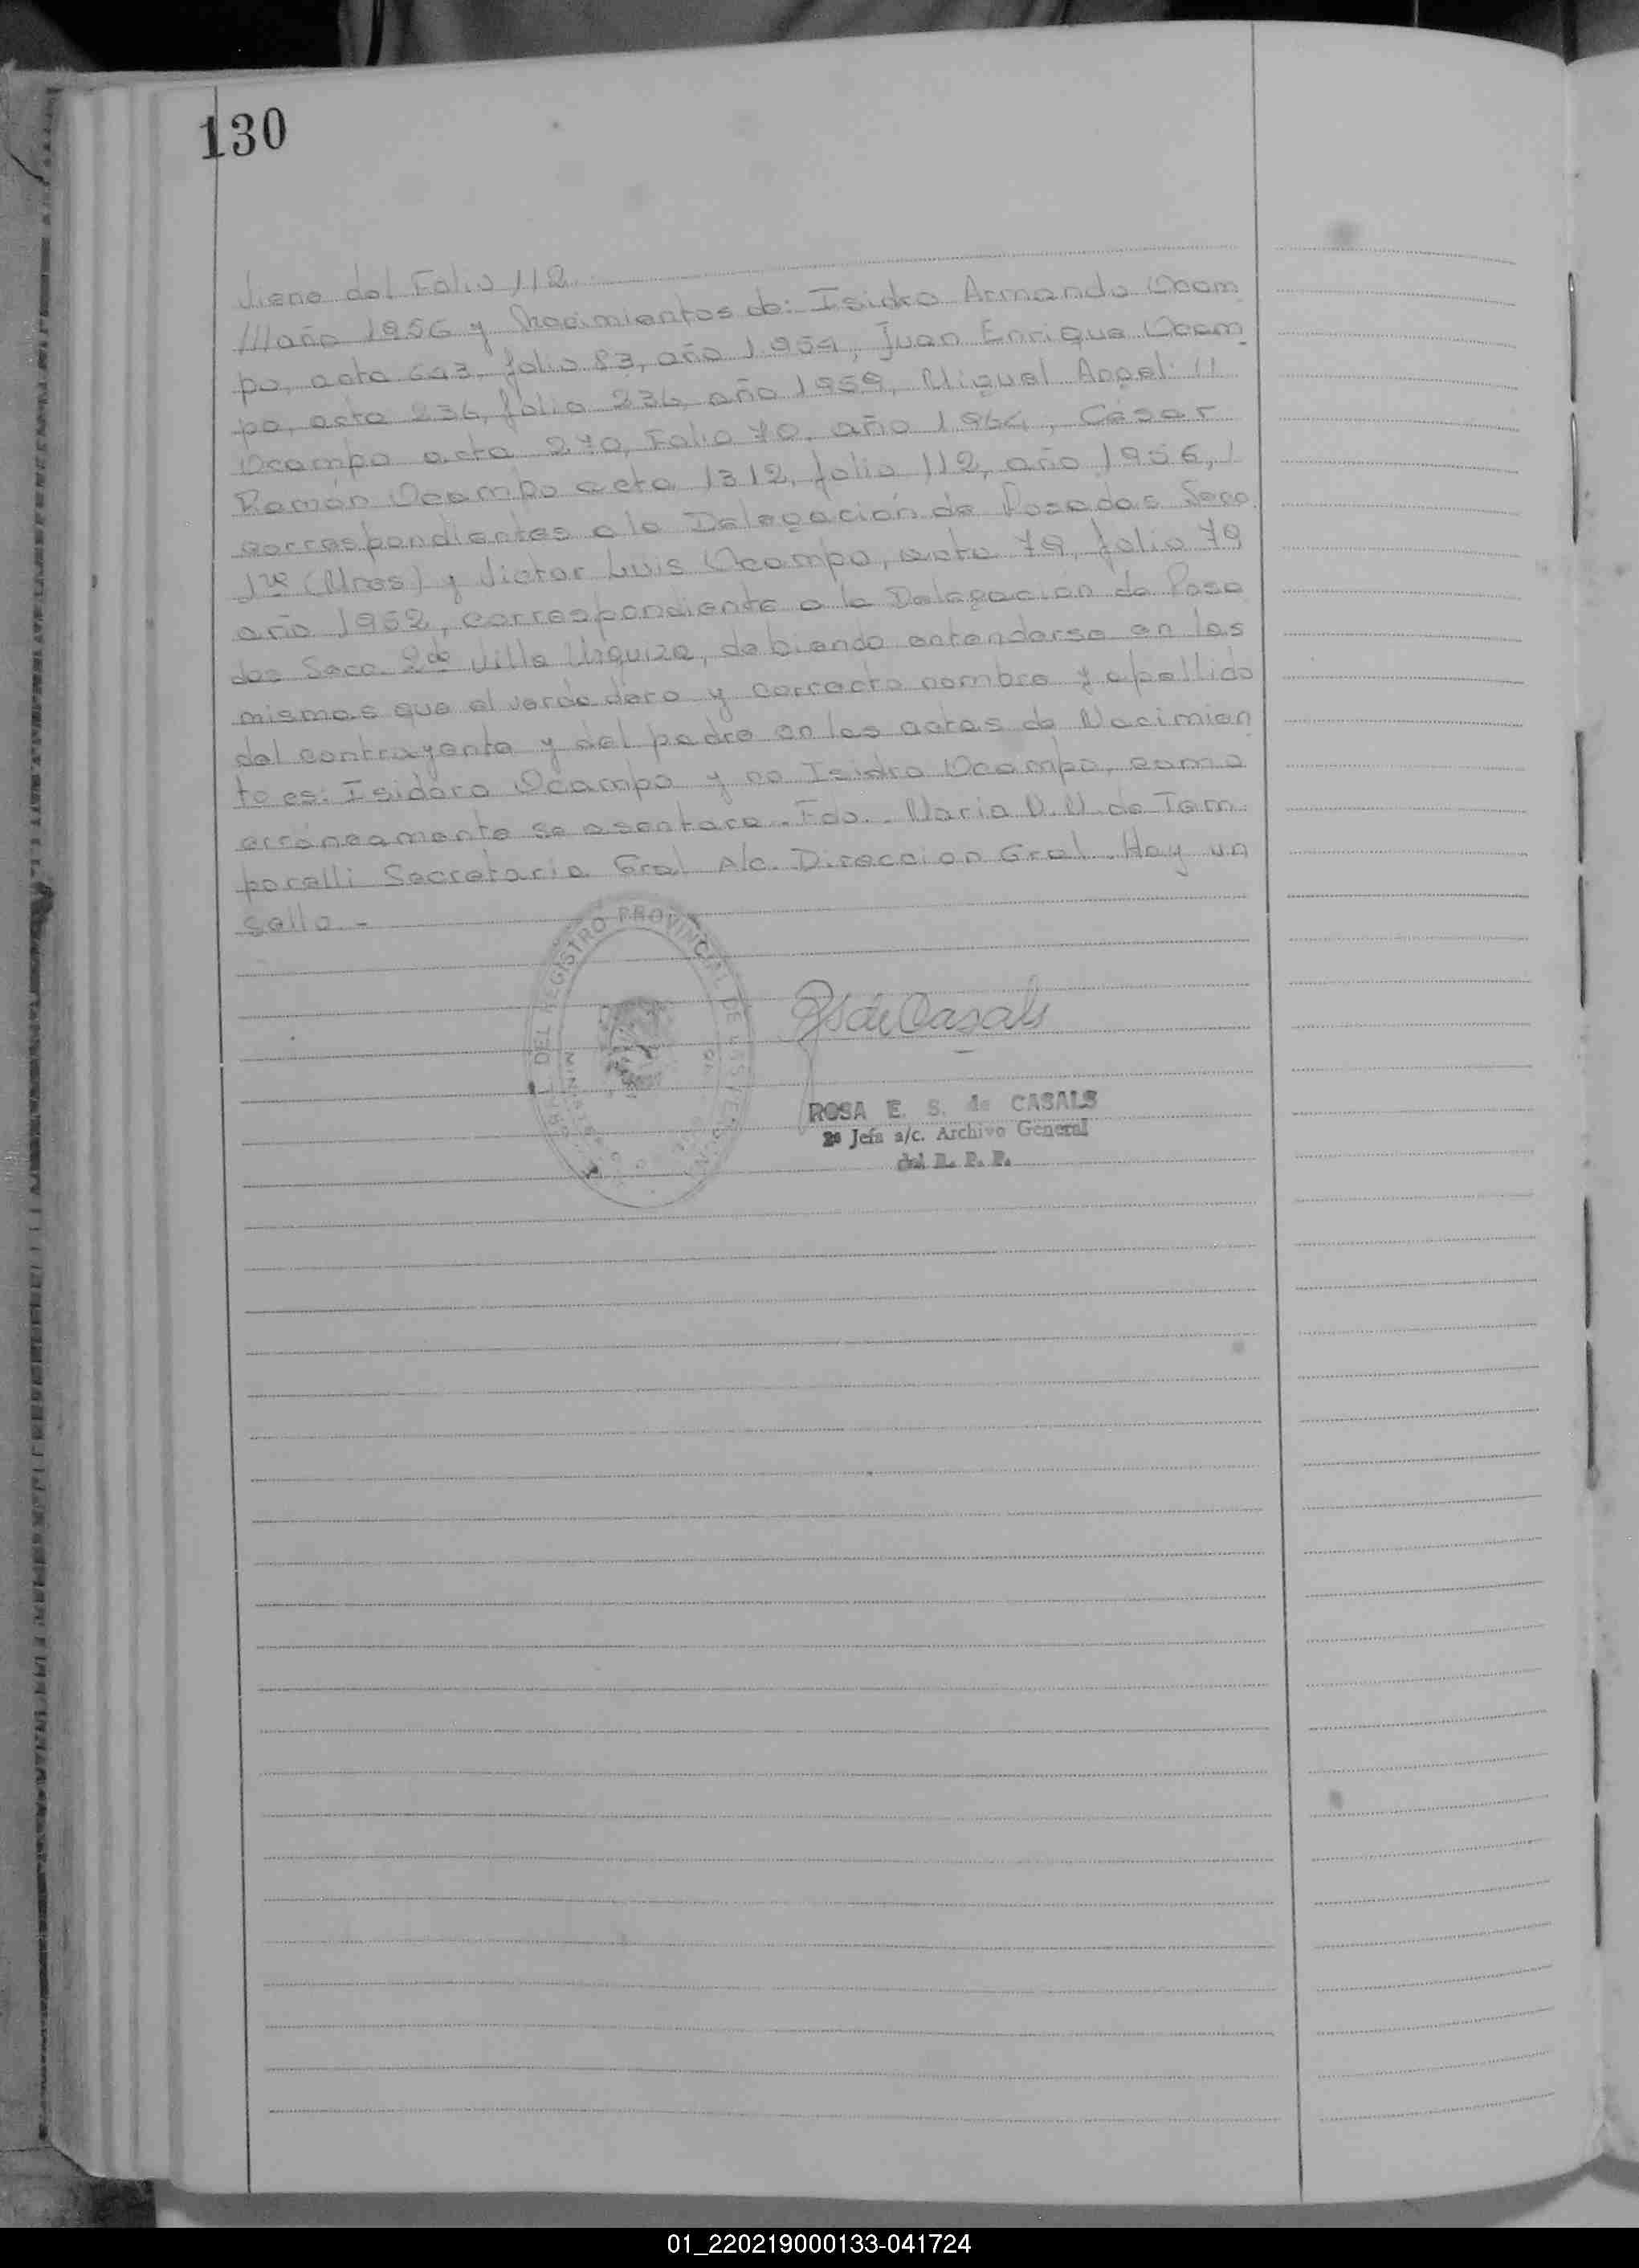 130
Viene del Folio 112.
///año 1956 y Nacimientos de: Isidro Armando Ocam
po, acta 643, folio 83, año 1954, Juan Enrique Ocam
po, acta 236, folio 236, año 1959, Miguel Angel //
Ocampo acta 270, Folio 70, año 1964, César
Ramón Ocampo acta 1312, folio 112, año 1956, /
correspondientes a la Delegación de Posadas Secc.
1ra (Mnes) y Victor Luis Ocampo, acta 79, folio 79
año 1952, correspondiente a la Delegación de Posa
das Secc. 2da Villa Urquiza, debiendo entenderse en las
mismas que el verdadero y correcto nombre y apellido
del contrayente y del padre en las actas de Nacimien
to es: Isidoro Ocampo y no Isidro Ocampo, como
erróneamente se asentara. Fdo. Maria M. de Tam
porelli Secretaria Gral A/c. Direccion Gral. Hay un
sello.-
DEL REGISTRO PROVINCIAL DE LAS PERSONAS
RS de Casals
ROSA E. S. de CASALS
2a Jefa a/c. Archivo General
del R. P. P.
01_220219000133-041724